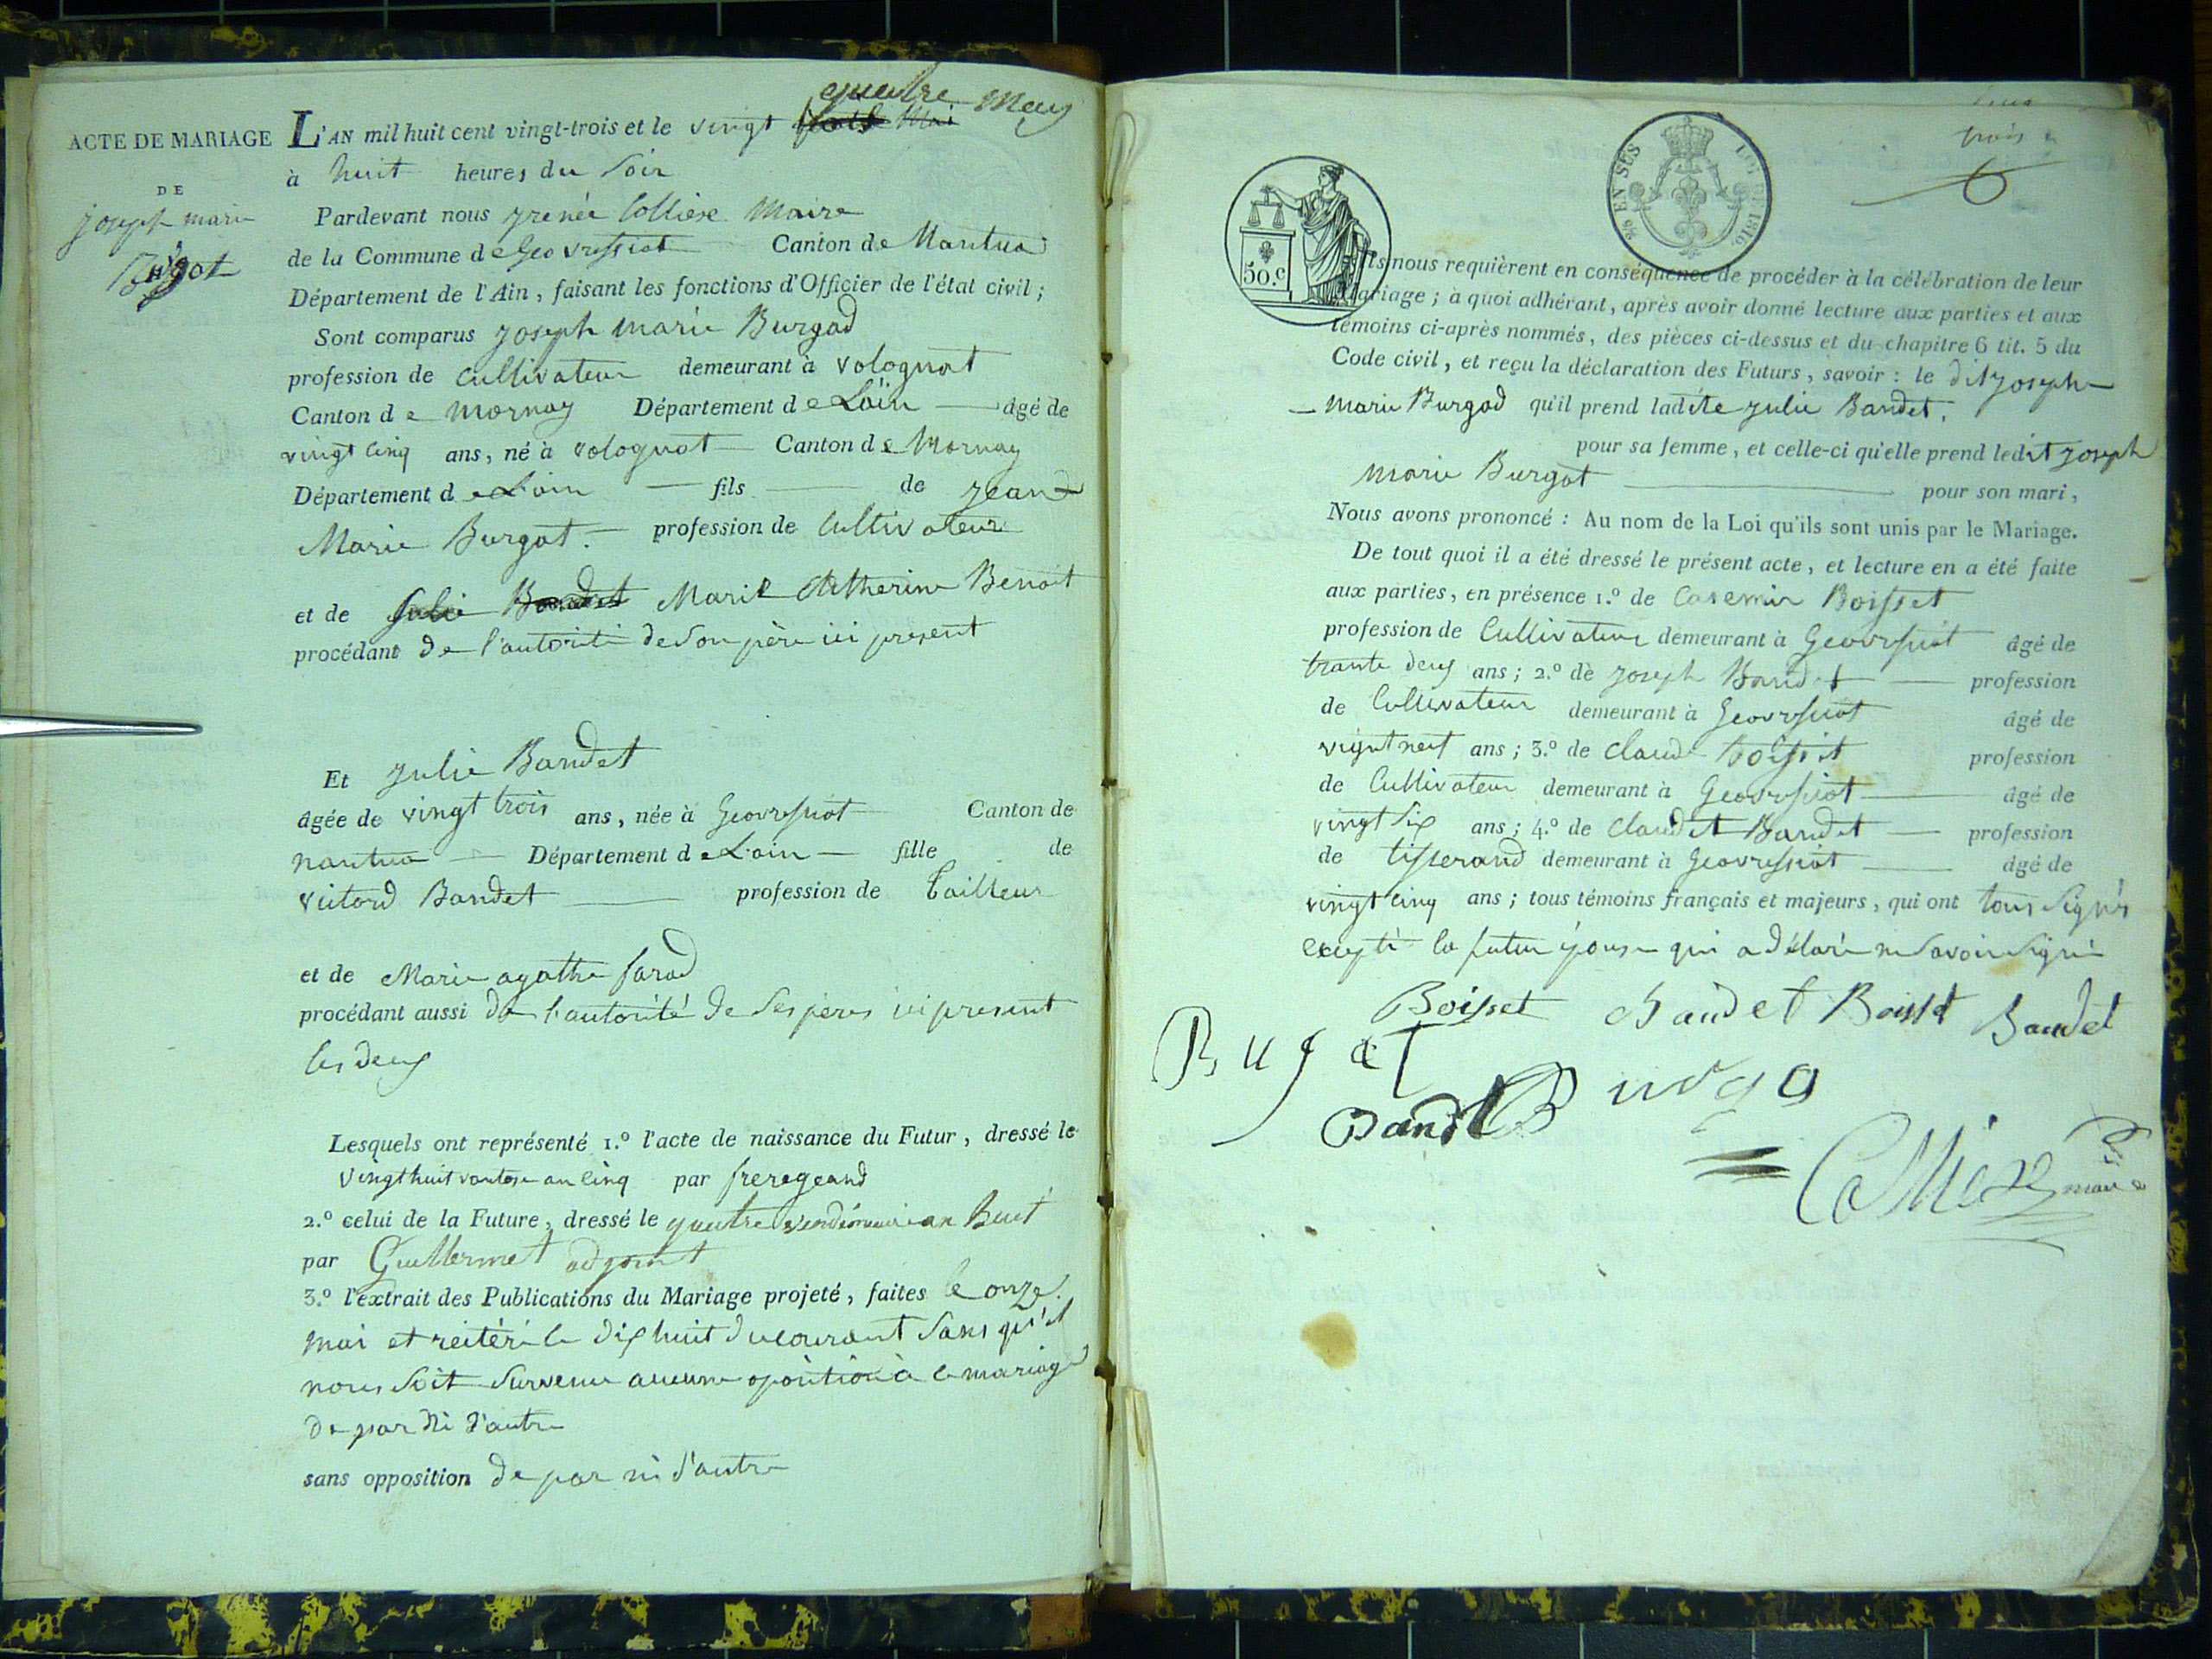 ACTE DE MARIAGE
DE
joseph marie
Burgot
L'AN mil huit cent vingt-trois et le vingt quatre May
à huit heures du Soir
Pardevant nous yrenée Collieꝛe Maire
de la Commune de Geovressiat Canton de Nantua
Département de l'Ain, faisant les fonctions d'Officier de l'état civil ;
Sont comparus joseph marie Burgod
profession de Cultivateur demeurant à volognat
Canton de mornay Département de Loin âgé de
vingt cinq ans, né à volognat Canton de Mornay
Département de Loin fils de jean
Marie Burgat. profession de Cultivateur
et de Julie Bandet Marie Catherine Benoit
procédant de l'autorité de Son père ici present
Et Julie Bandet
âgée de vingt trois ans, née à Geovressiat Canton de
nantua Département de Loin fille de
victord Bandet profession de Tailleur
et de Marie agathe
procédant aussi de l'autorité de Ses peres ici present
les deux
Lesquels ont représenté 1.º l'acte de naissance du Futur, dressé le
vingt huit vantose an Cinq par freregeand
2.º celui de la Future, dressé le quatre vendémiair an huit
par Guillermet adjoint
3.º l'extrait des Publications du Mariage projeté, faites le onze
mai et reitéré le dix huit du courant Sans qu'il
nous Soit Survenu aucune oposition à ce mariage
de par ni d'autre
sans opposition de par ni d'autre
trois
50. c
96 EN SUS
LOI DE 1816.
Ils nous requièrent en conséquence de procéder à la célébration de leur
Mariage ; à quoi adhérant, après avoir donné lecture aux parties et aux
témoins ci-après nommés, des pièces ci-dessus et du chapitre 6 tit. 5 du
Code civil, et reçu la déclaration des Futurs, savoir : le dit joseph
marie Burgod qu'il prend ladite Julie Bandet,
pour sa femme, et celle-ci qu'elle prend ledit joseph
marie Burgat pour son mari,
Nous avons prononcé : Au nom de la Loi qu'ils sont unis par le Mariage.
De tout quoi il a été dressé le présent acte, et lecture en a été faite
aux parties, en présence 1.º de Casemir Boisset
profession de Cultivateur demeurant à Geovressiat âgé de
trante deux ans ; 2.º de joseph Bandet profession
de Cultivateur demeurant à Geovressiat âgé de
vignt neuf ans ; 3.º de Claude boisset profession
de Cultivateur demeurant à Geovressiat âgé de
vingt Six ans ; 4.º de Claudet Bandet profession
de tisserand demeurant à Geovressiat âgé de
vingt cinq ans ; tous témoins français et majeurs, qui ont tous Signés
excepté la futur épouse qui a déclaré ne Savoir Signé
Boisset Bandet Boisset Bandet
Bugat
Bandet Burga
Colliex maire